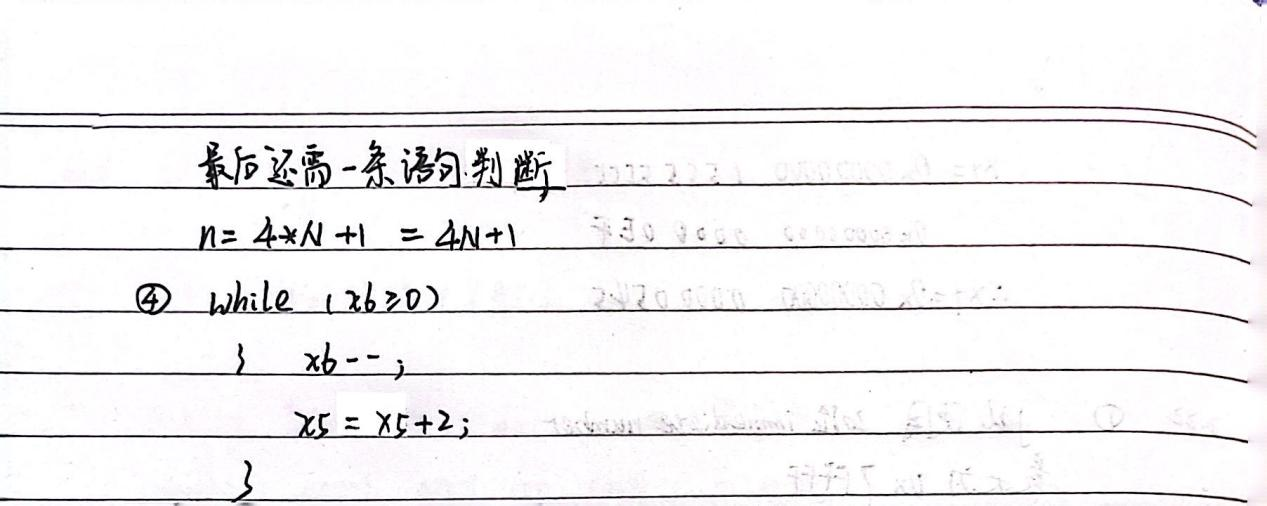 最后还需一条语句判断
n= 4*N+1 = 4N+1
④ while (x6≥0)
{ x6--;
x5 = x5+2;
}